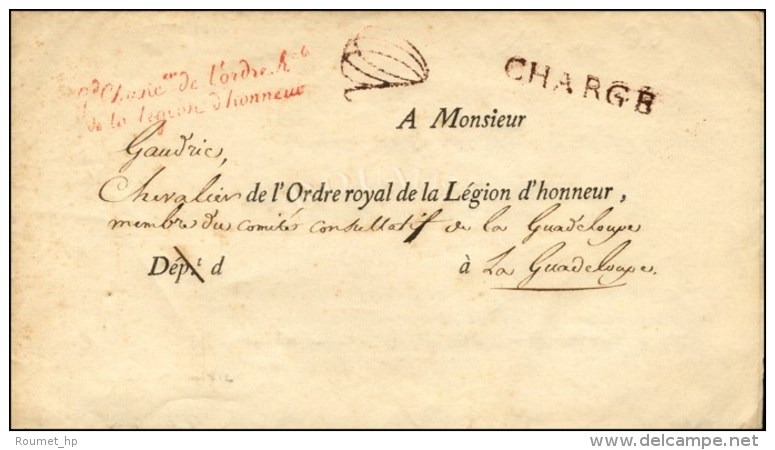 Gd Chancer de l'ordre Rl
de la légion d'honneur
CHARGÉ
A Monsieur
Gaudric,
Chevalier de l'Ordre royal de la Légion d'honneur,
membre du comité consultatif de la Guadeloupe
Dépt. d à La Guadeloupe.
Roumet_hp
www.delcampe.net